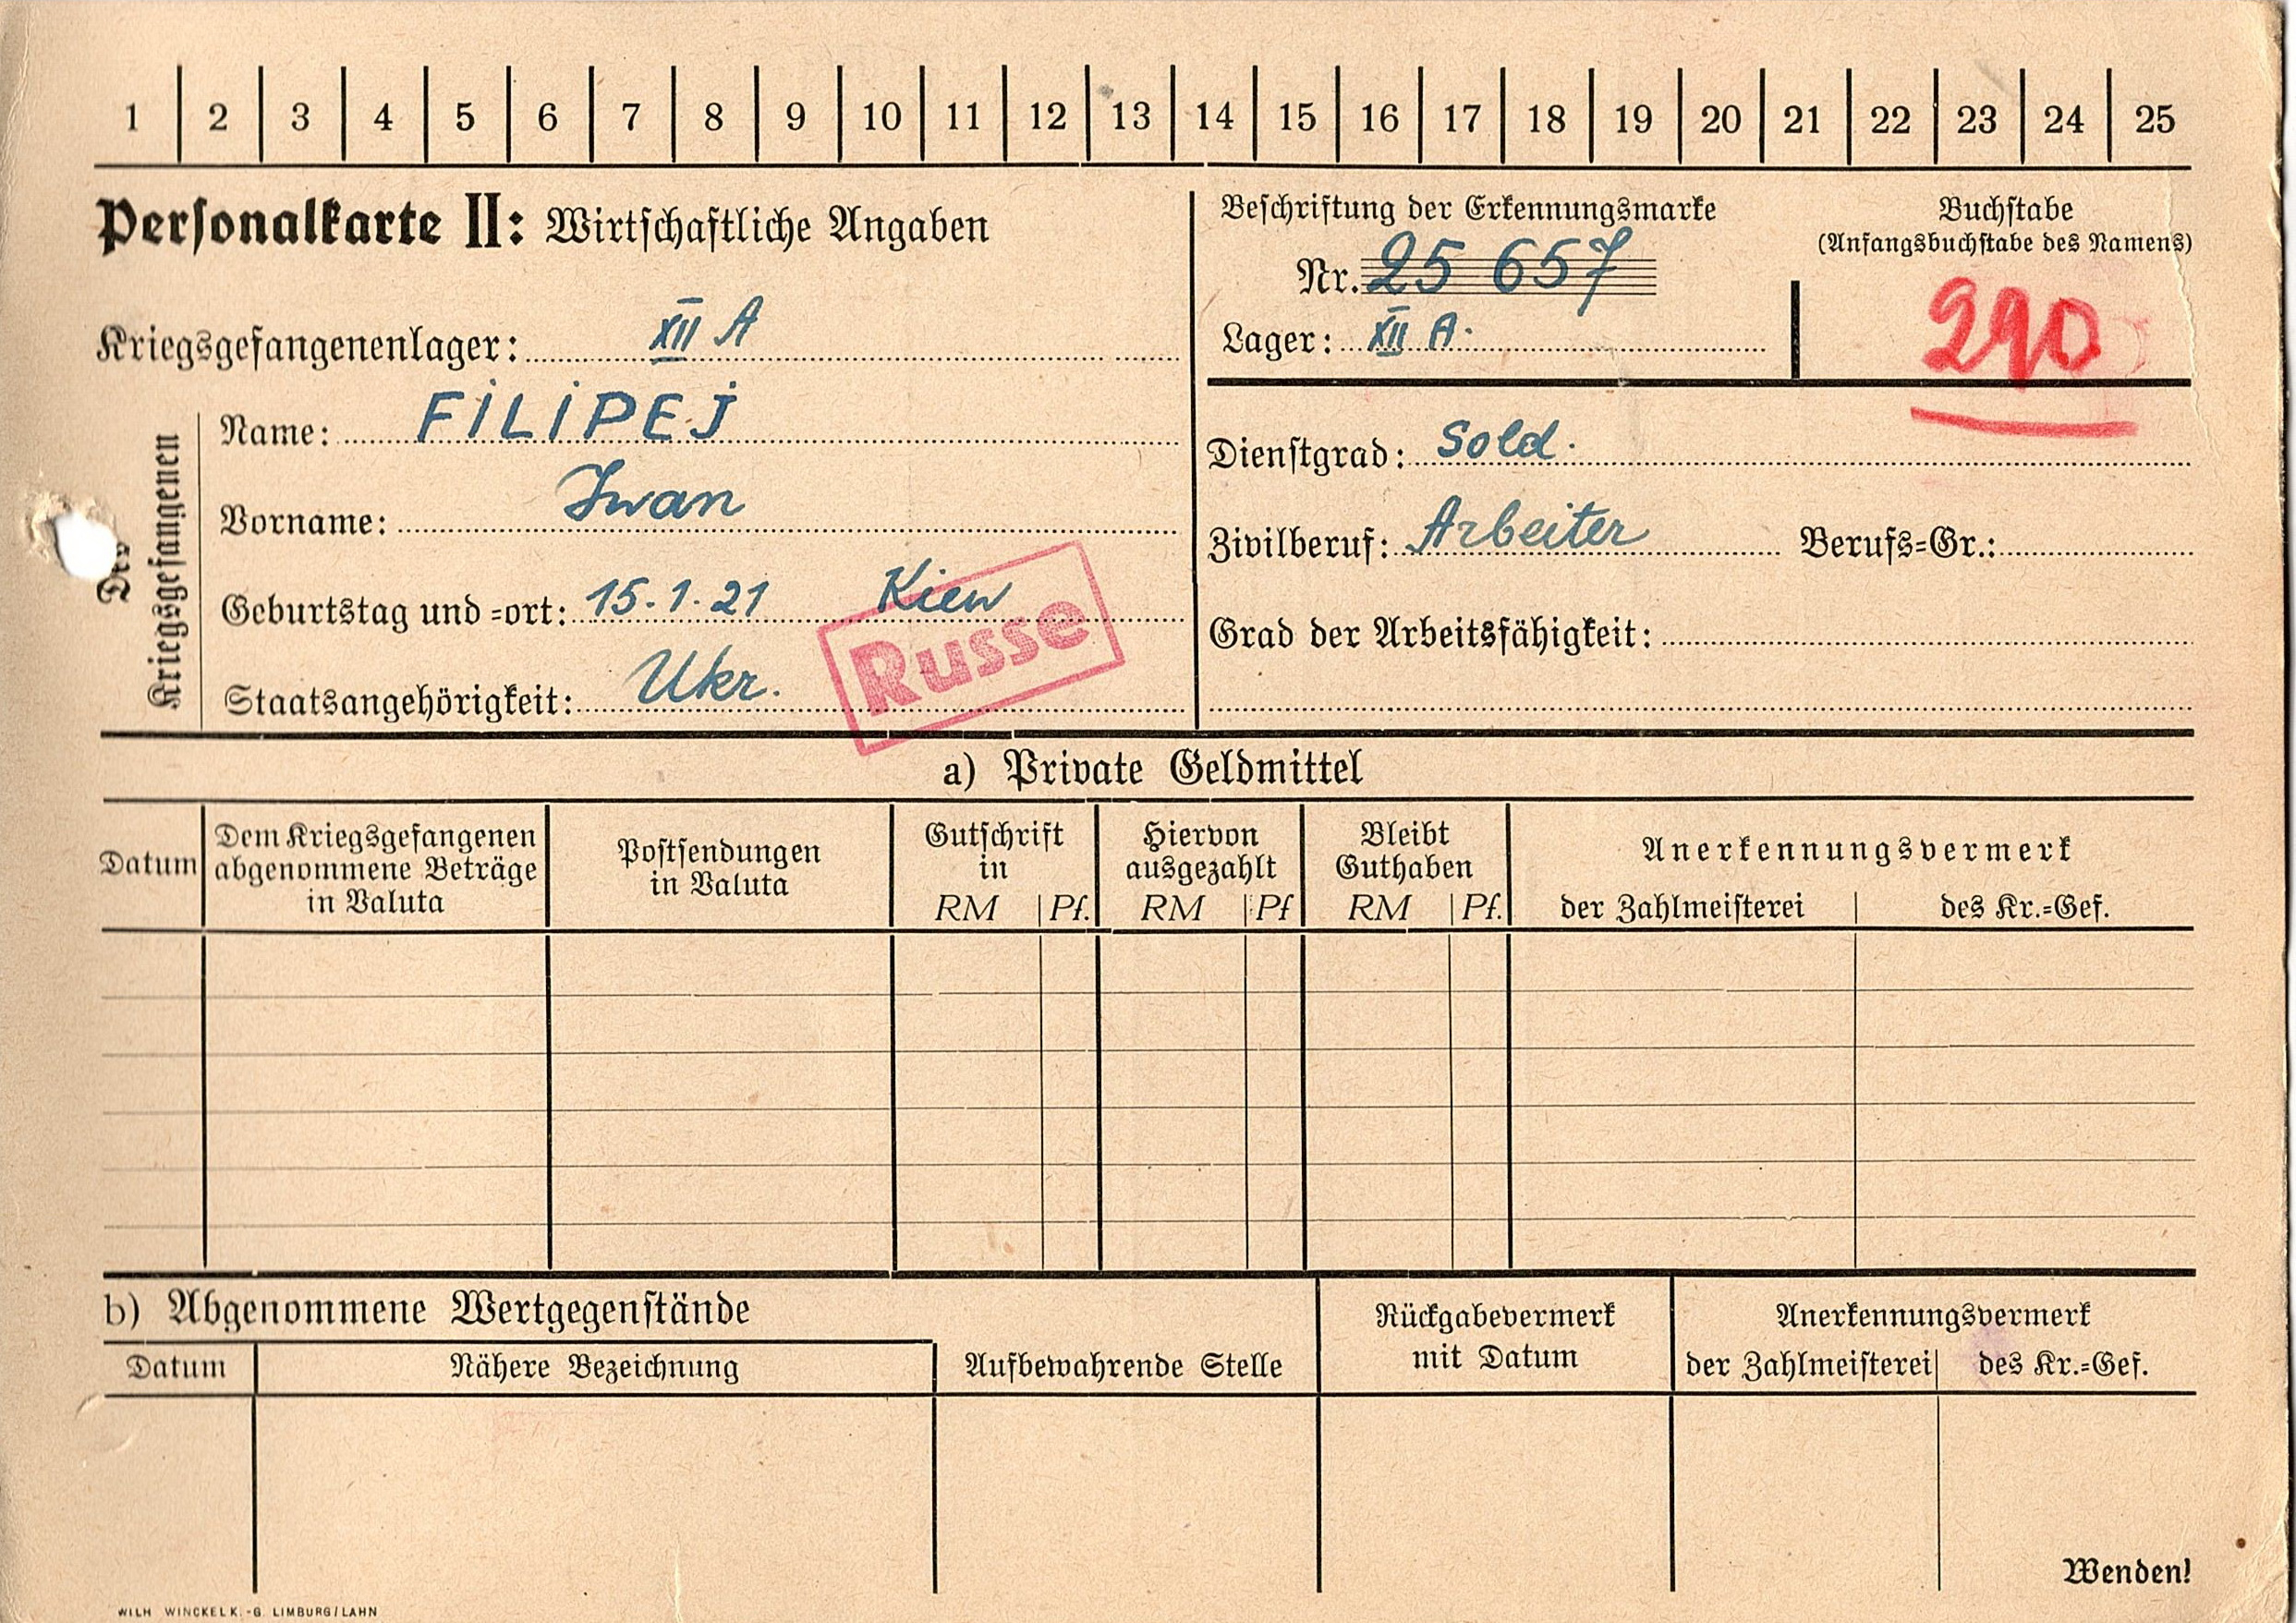 1 2 3 4 5 6 7 8 9 10 11 12 13 14 15 16 17 18 19 20 21 22 23 24 25
Personalkarte II: Wirtschaftliche Angaben
Beschriftung der Erkennungsmarke
Nr. 25 657
Lager: XII A.
Buchstabe
(Anfangsbuchstabe des Namens)
290
Kriegsgefangenenlager: XII A
Des Kriegsgefangenen
Name: FILIPEJ
Vorname: Iwan
Geburtstag und -ort: 15.1.21 Kiew
Staatsangehörigkeit: Ukr.
Russe
Dienstgrad: Sold.
Zivilberuf: Arbeiter Berufs-Gr.:
Grad der Arbeitsfähigkeit:
a) Private Geldmittel
Datum
Dem Kriegsgefangenen
abgenommene Beträge
in Valuta
Postsendungen
in Valuta
Gutschrift
in
RM Pf.
Hiervon
ausgezahlt
RM Pf
Bleibt
Guthaben
RM Pf.
Anerkennungsvermerk
der Zahlmeisterei des Kr.-Gef.
b) Abgenommene Wertgegenstände
Datum Nähere Bezeichnung Aufbewahrende Stelle
Rückgabevermerk
mit Datum
Anerkennungsvermerk
der Zahlmeisterei des Kr.-Gef.
Wenden!
WILH WINCKEL K.-G. LIMBURG/LAHN